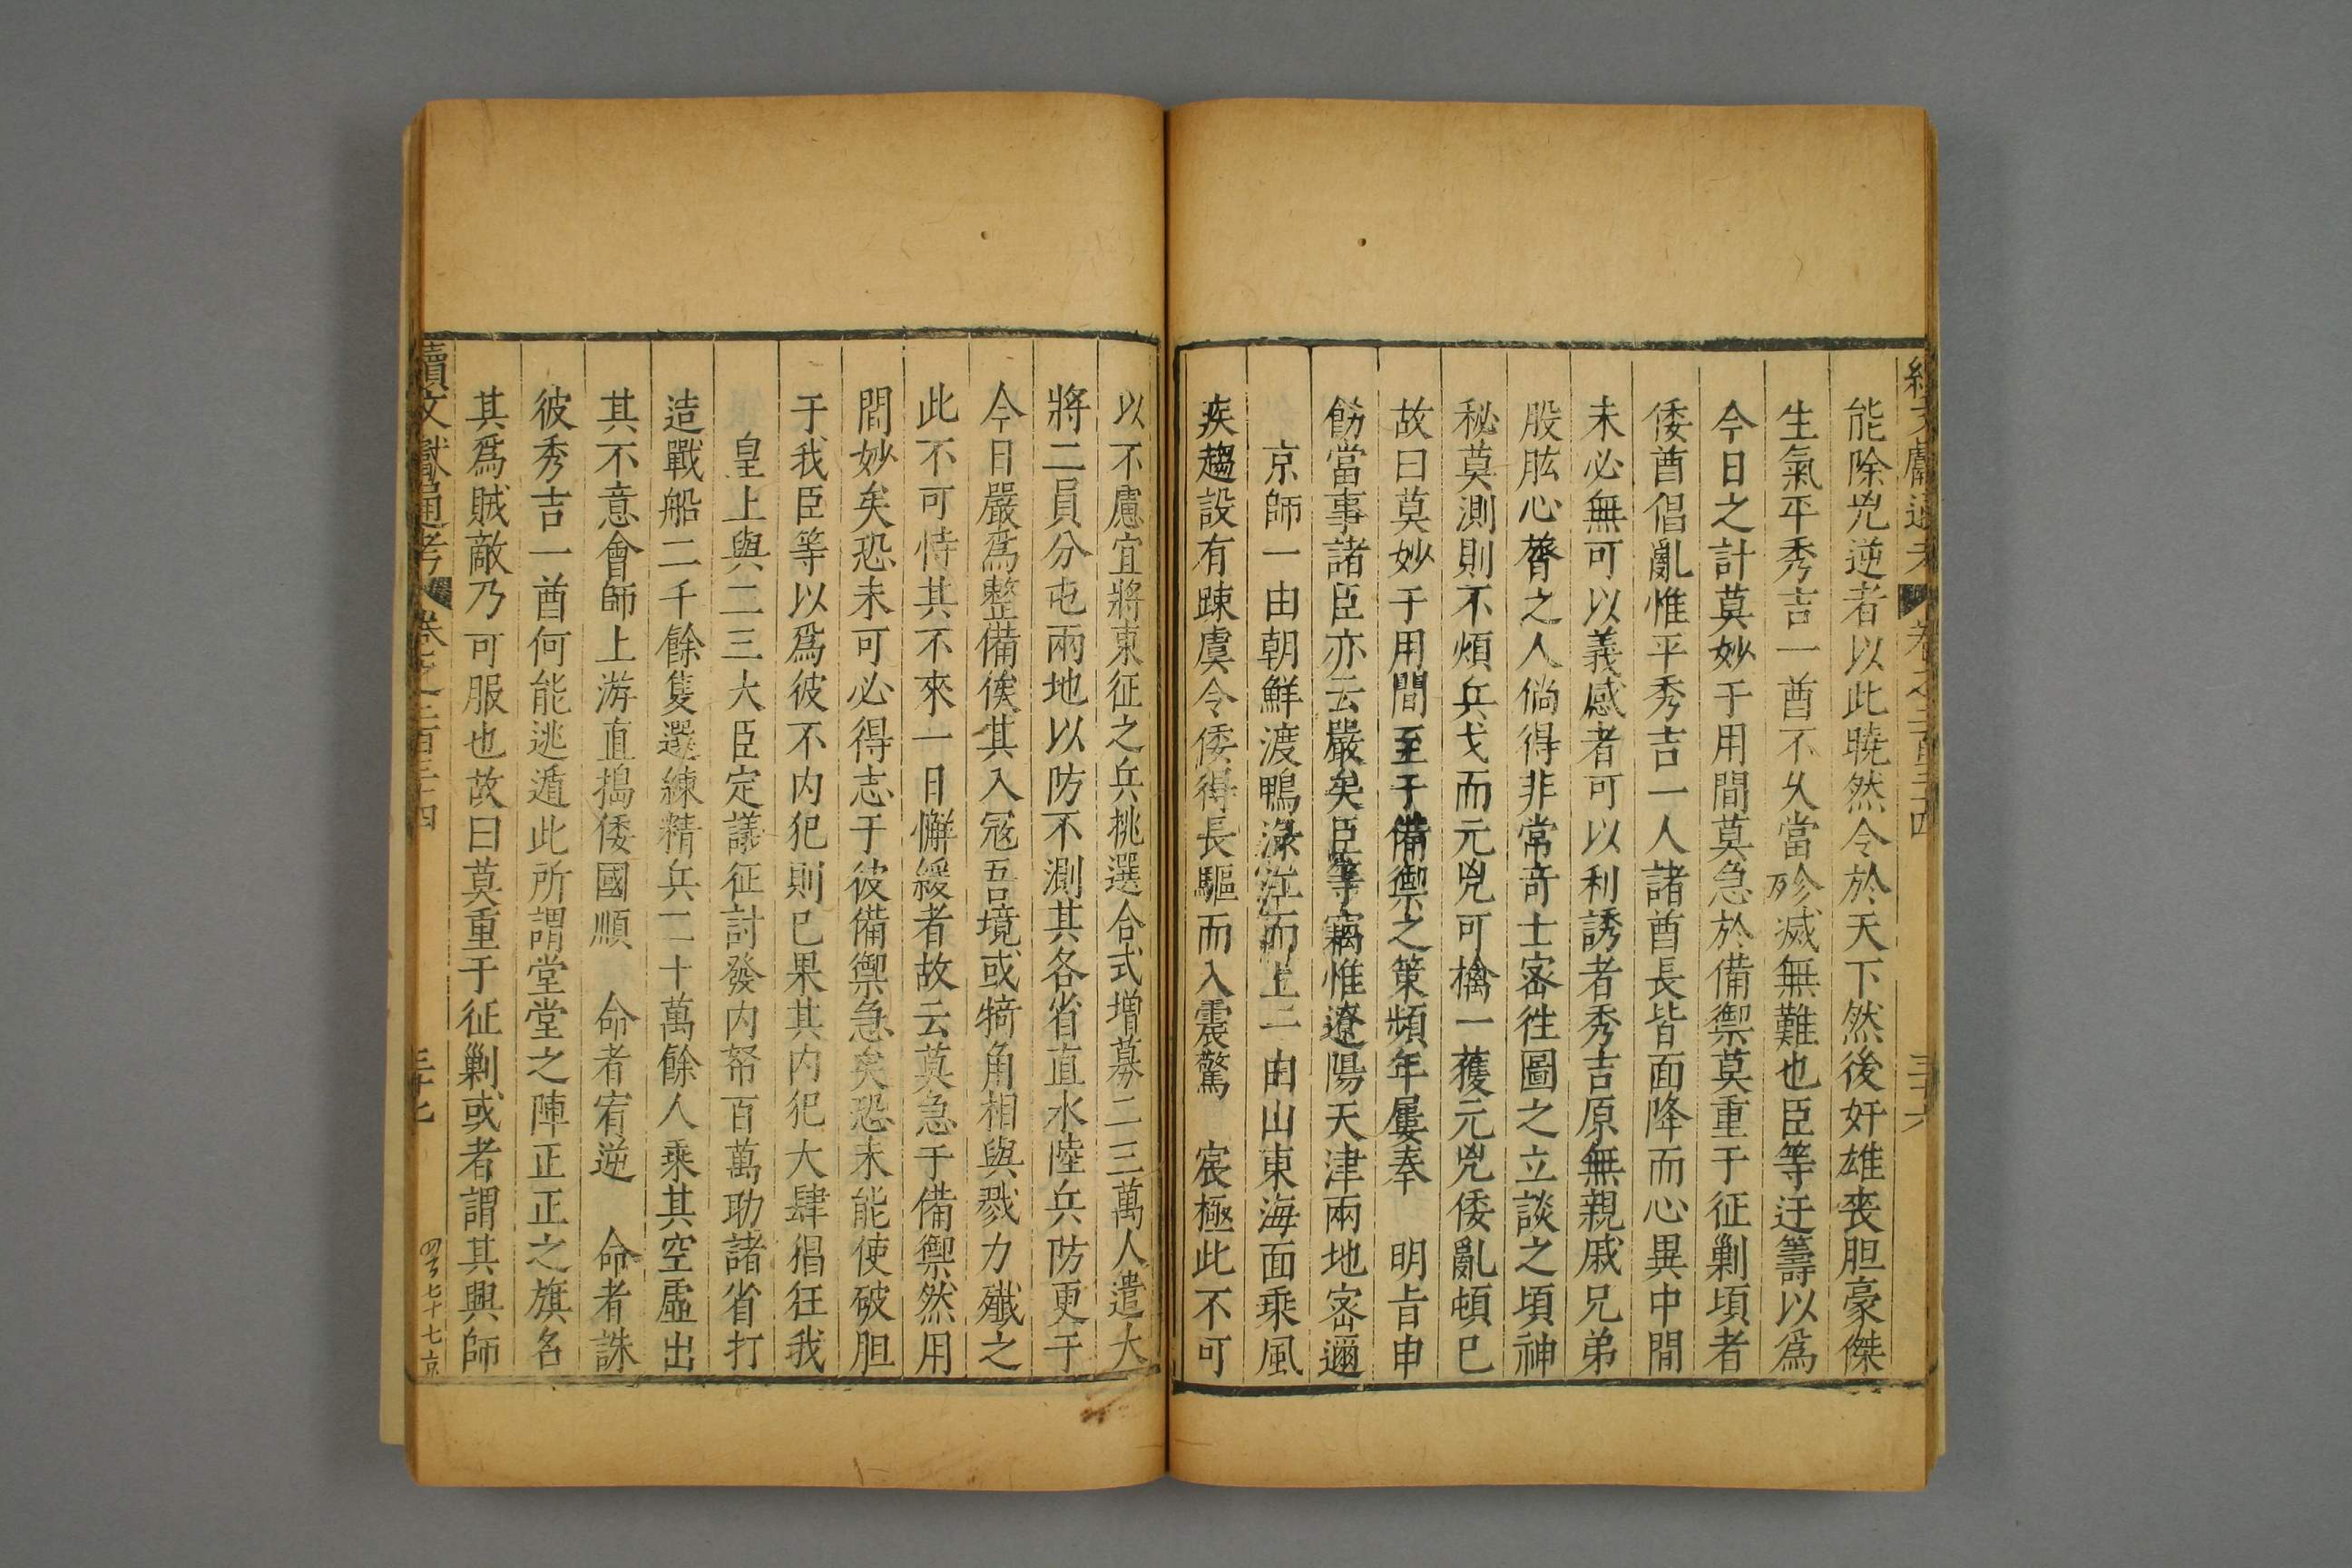 續文獻通考 卷之二百三十四 三十六
能除兇逆者以此曉然令於天下然後奸雄喪胆豪傑
生氣平秀吉一酋不乆當殄滅無難也臣等迂籌以爲
今日之計莫妙于用間莫急於備禦莫重于征剿頃者
倭酋倡亂惟平秀吉一人諸酋長皆面降而心異中間
未必無可以義感者可以利誘者秀吉原無親戚兄弟
股肱心膂之人倘得非常奇士密徃圖之立談之頃神
秘莫測則不煩兵戈而元兇可擒一獲元兇倭亂頓已
故曰莫妙于用間至于備禦之策頻年屢奉 明旨申
飭當事諸臣亦云嚴矣臣等竊惟遼陽天津兩地密邇
京師一由朝鮮渡鴨淥江而上一由山東海面乘風
疾趨設有踈虞令倭得長驅而入震驚 宸極此不可
以不慮宜將東征之兵挑選合式増募二三萬人遣大
將二員分屯兩地以防不測其各省直水陸兵防更于
今日嚴爲整備俟其入冦吾境或犄角相與戮力殲之
此不可恃其不來一日懈緩者故云莫急于備禦然用
間妙矣恐未可必得志于彼備禦急矣恐未能使破胆
于我臣等以爲彼不内犯則已果其内犯大肆猖狂我
皇上與二三大臣定議征討發内帑百萬助諸省打
造戰船二千餘隻選練精兵二十萬餘人乘其空虛出
其不意會師上游直搗倭國順 命者宥逆 命者誅
彼秀吉一酋何能逃遁此所謂堂堂之陣正正之旗名
其爲賊敵乃可服也故曰莫重于征剿或者謂其興師
續文獻通考 卷之二百三十四 三十七